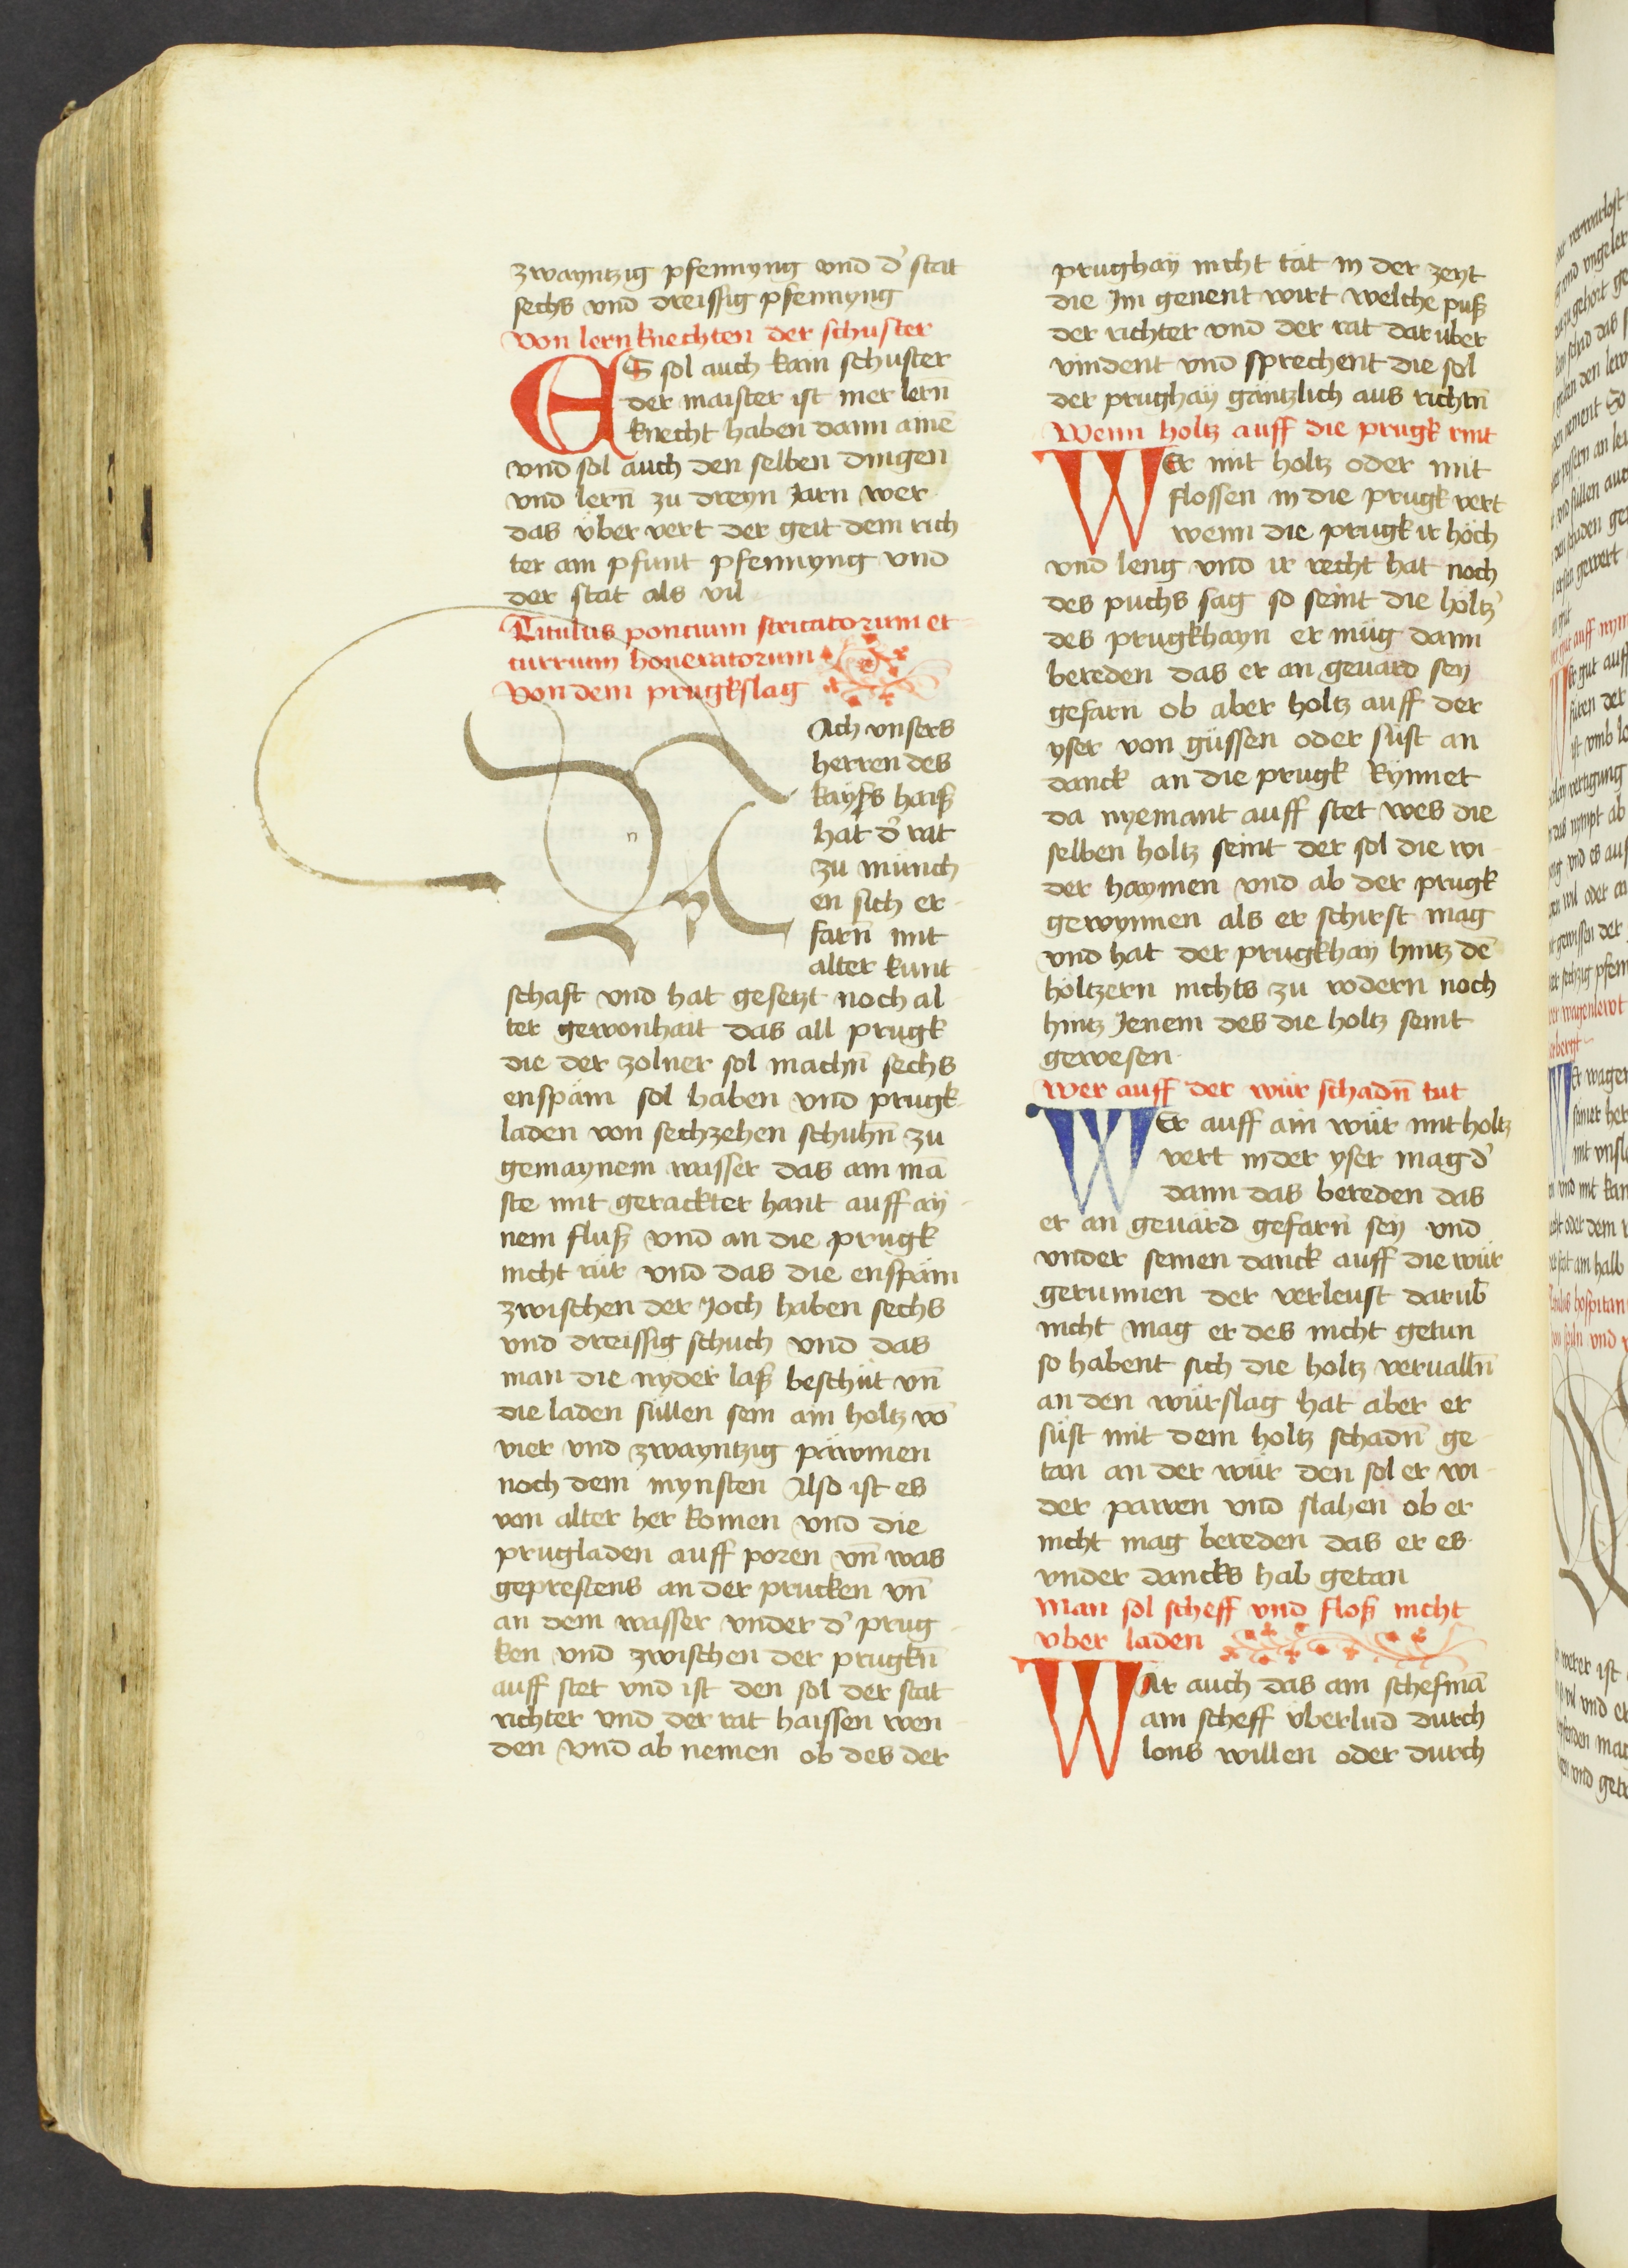 zwayntzig pfennyng vnd d' stat
sechs vnd dreissig pfennyng
Von lern knechten der schuster
ES sol auch kain schuster
der maister ist mer lern̄
knecht haben dann ainē
vnd sol auch den selben dingen
vnd lern̄ zu dreyn Jarn wer
das über vert der geit dem rich
ter ain pfunt pfennyng vnd
der stat als vil
Titulus poncium stricatorum et
turrium honeratorum
Von dem prugkslag
NAch vnsers
herren des
kaysers haiß
hat d' rat
zu münch
en sich er
farn̄ mit
alter kunt
schaft vnd hat gesetzt noch al
ter gewonhait das all prugk
die der zolner sol machn̄ sechs
enspäm sol haben vnd prugk
laden von sechzehen schuhn̄ zu
gemaynem wasser das ain mā
ste mit gerackter hant auff ay
nem fluß vnd an die prugk
nicht rür vnd das die enspäm
zwischen der Joch haben sechs
vnd dreissig schuch vnd das
man die nyder laß beschüt vn̄
die laden süllen sein ain holtz vō
vier vnd zwayntzig päwmen
noch dem mynsten Also ist es
von alter her komen vnd die
prugladen auff poren vn̄ was
geprestens an der prucken vn̄
an dem wasser vnder d' prug
ken vnd zwischen der prugkn̄
auff stet vnd ist den sol der stat
richter vnd der rat haissen wen
den vnd ab nemen ob des der
prughaÿ nicht tät in der zeyt
die Im genent wirt welche puß
der richter vnd der rat dar über
vindent vnd sprechent die sol
der prughaÿ gäntzlich aus richtn̄
Wenn holtz auff die prugk rint
WEr mit holtz oder mit
flossen in die prugk vert
wenn die prugk ir höch
vnd leng vnd ir recht hat noch
des puchs sag so seint die höltz'
des prugkhayn er müg dann
bereden das er an geuärd seÿ
gefarn ob aber holtz auff der
yser von güssen oder süst an
danck an die prugk kÿmet
da nyemant auff stet wes die
selben holtz seint der sol die wi
der haymen vnd ab der prugk
gewynnen als er schirst mag
vnd hat der prugkhaÿ hintz dē
höltzern nichts zu vodern noch
hintz Jenem des die holtz seint
gewesen
Wer auff der wür schadn̄ tut
WEr auff ain wür mit holtz
vert in der yser mag d'
dann das bereden das
er an geuärd gefarn̄ seÿ vnd
vnder seinen danck auff die wür
gerunnen der verleust darub̄
nicht mag er des nicht getun
so habent sich die holtz verualln̄
an den würslag hat aber er
süst mit dem holtz schadn̄ ge
tan an der wür den sol er wi
der pawen vnd slahen ob er
nicht mag bereden das er es
vnder dancks hab getan
Man sol scheff vnd floß nicht
über laden
WAr auch das ain schefmā
ain scheff überlüd durch
lons willen oder durch